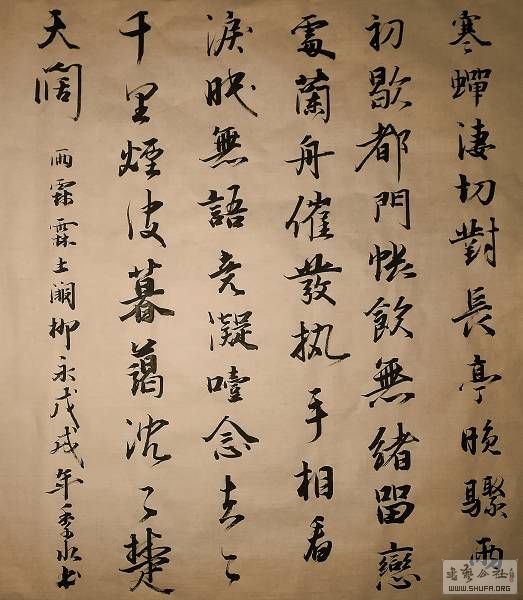 寒蟬淒切對長亭晚驟雨
初歇都門帳飲無緒留戀
處蘭舟催發执手相看
淚眼無語竟凝噎念去々
千里煙波暮藹沈々楚
天闊
雨霖霖上闋柳永戊戌年书
书艺公社
WWW.SHUFA.ORG